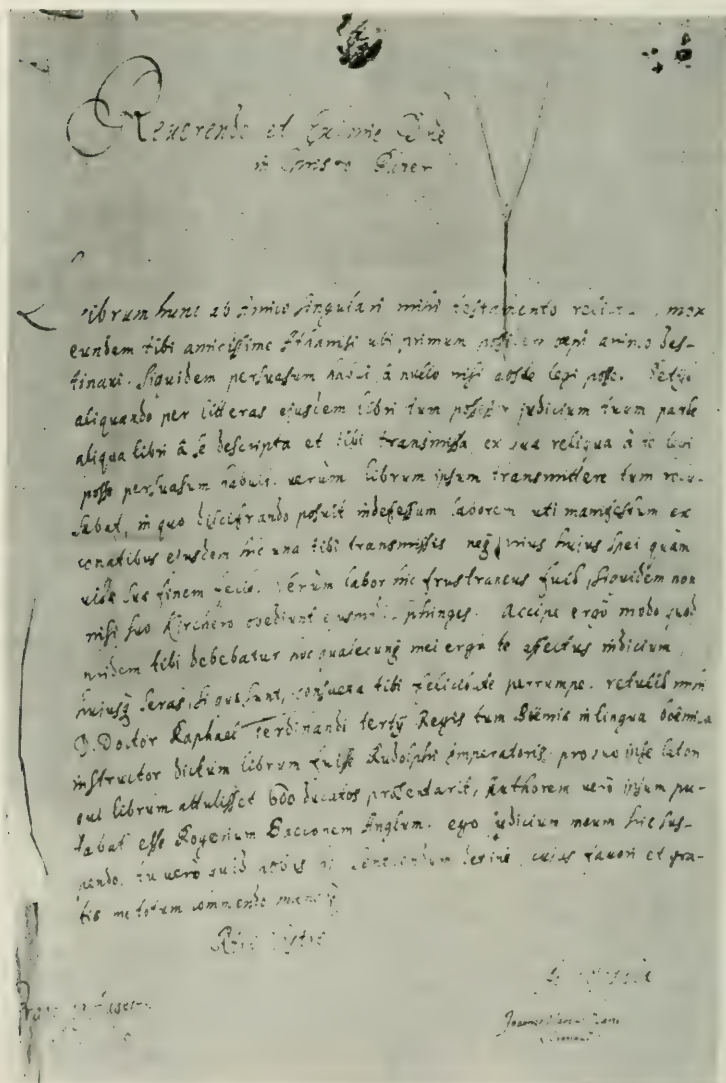 Reuerende et Eximie Dñe
in Christo Pater
Librum hunc ab amico singulari mihi testamento relictum, mox
eundem tibi amicissime Athanasi ubi primum possidere cæpi animo des-
tinaui: siquidem persuasum habui à nullo nisi abs te legi posse. Petijt
aliquando per litteras ejusdem libri tum possessor judicium tuum parte
aliqua libri à se descripta et tibi transmissa, ex qua reliqua à te legi
posse persuasum habuit: uerùm librum ipsum transmittere tum recu-
sabat, in quo discifrando posuit indefessum laborem, uti manifestum ex
conatibus ejusdem hic unà tibi transmissis neq prius huius spei quàm
uitæ suæ finem fecit. Verùm labor hic frustraneus fuit, siquidem non
nisi suo Kirchero obediunt ejusmodi sphinges. Accipe ergò modò quod
pridem tibi debebatur hoc qualecunq mei ergà te affectus indicium;
huiusq seras, si quæ sunt, consueta tibi felicitate perrumpe. retulit mihi
D. Doctor Raphael Ferdinandi tertij Regis tum Boëmiæ in lingua boëmica
instructor dictum librum fuisse Rudolphi Imperatoris, pro quo ipse latori
qui librum attulisset 600 ducatos præsentarit, Authorem uerò ipsum pu-
tabat esse Rogerium Bacconem Anglum. ego judicium meum hic sus-
pendo. tu uerò quid nobis hic sentiendum defini, cuius fauori et gra-
tiæ me totum commendo maneoq
Joannes Marcus Marci